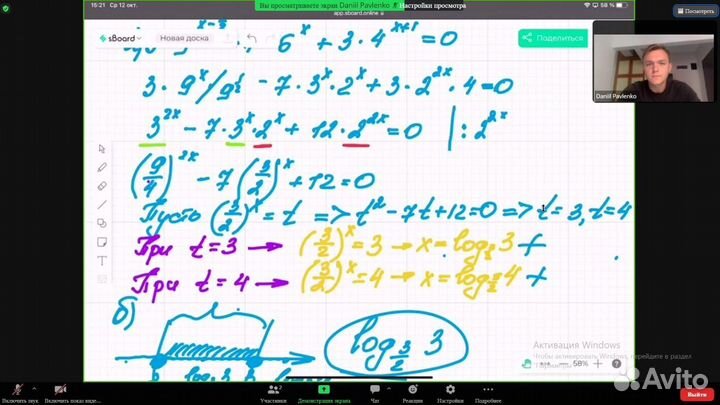 15:21 Ср 12 окт.
Вы просматриваете экран Daniil Pavlenko
Настройки просмотра
58 %
Посмотреть
app.sboard.online
sBoard
Новая доска
Поделиться
Daniil Pavlenko
6^x + 3·4^{x+1} = 0
3·9^x/9^{1/2} - 7·3^x·2^x + 3·2^{2x}·4 = 0
3^{2x} - 7·3^x·2^x + 12·2^{2x} = 0 | : 2^{2x}
(9/4)^{2x} - 7(3/2)^x + 12 = 0
Пусть (3/2)^x = t => t^2 - 7t + 12 = 0 => t = 3, t = 4
При t = 3 → (3/2)^x = 3 → x = log_{3/2} 3 +
При t = 4 → (3/2)^x = 4 → x = log_{3/2} 4 +
б)
log_{3/2} 3
Активация Windows
Чтобы активировать Windows, перейдите в раздел
58%
Включить звук
Включить показ виде...
Участники
2
Демонстрация экрана
Чат
Реакции
Настройки
Подробнее
Выйти
Avito